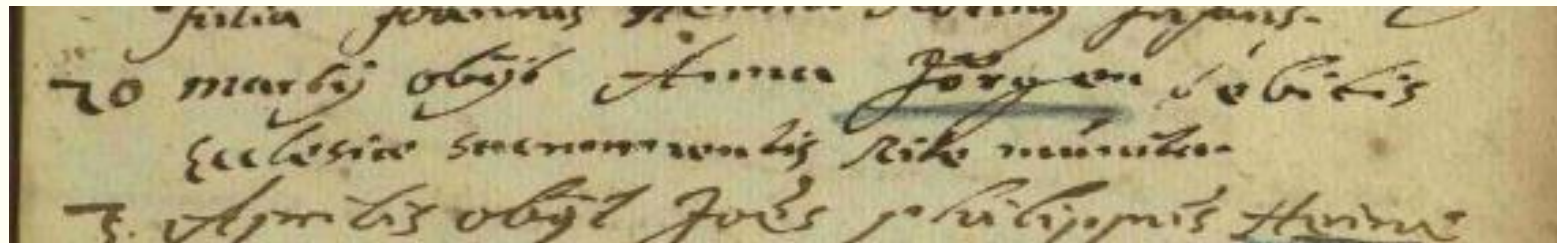 filia Joannis infans.
20 martij obijt Anna Jörgen debitis
Ecclesiae sacramentis rite munita
3. Aprilis obijt Joês philippus